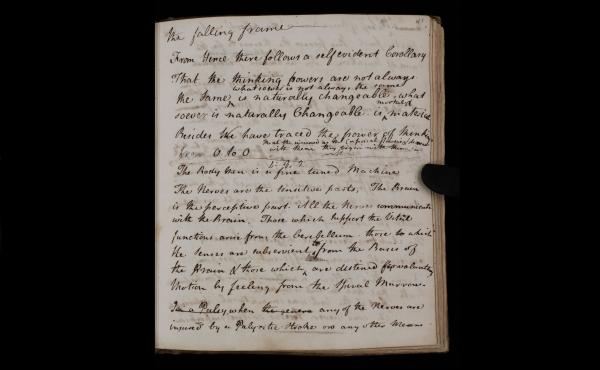 the falling frame
From Hence there follows a self evident Corollary
That the thinking powers are not always
what soever is not always the same
the same is naturally changeable, what
mortal &
soever is naturally Changeable is material
Besides We have traced the power of think
from 0 to 0
with them they
The Body then is a fine tuned Machine
The Nerves are the sensitive parts, The Brain
is the perceptive part. All the Nerves communicate
with the Brain. Those which support the Vital
functions arise from the cerebellum those to which
the senses are subservient from the Bases of
the Brain & those which are destened for voluntary
Motion by feeling from the Spinal Marrow.
In a Palsy when the any of the Nerves are
injured by a Palytic Stroke or any other Means